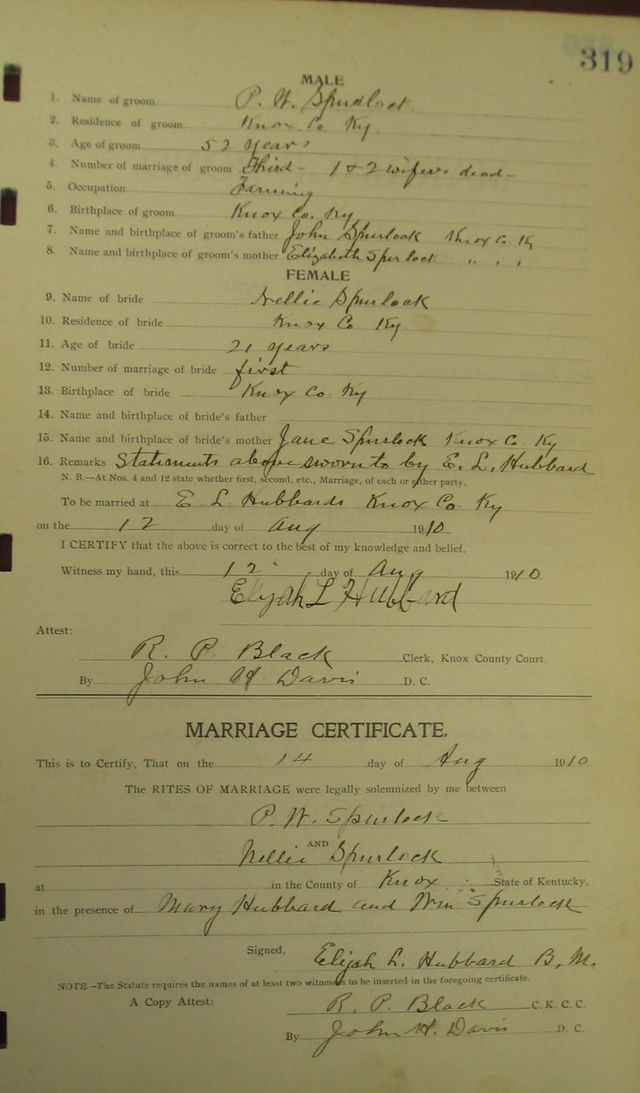 319
MALE
1. Name of groom P. W. Spurlock
2. Residence of groom Knox Co. Ky.
3. Age of groom 52 years
4. Number of marriage of groom Third - 1 & 2 wifes dead -
5. Occupation Farming
6. Birthplace of groom Knox Co. Ky
7. Name and birthplace of groom's father John Spurlock Knox Co Ky
8. Name and birthplace of groom's mother Elizabeth Spurlock " " "
FEMALE
9. Name of bride Nellie Spurlock
10. Residence of bride Knox Co Ky
11. Age of bride 21 years
12. Number of marriage of bride first
13. Birthplace of bride Knox Co. Ky
14. Name and birthplace of bride's father
15. Name and birthplace of bride's mother Jane Spurlock Knox Co. Ky
16. Remarks Statements above sworn to by E. L. Hubbard
N. B.—At Nos. 4 and 12 state whether first, second, etc., Marriage, of each or either party.
To be married at E L Hubbards Knox Co. Ky
on the 12 day of Aug 1910
I CERTIFY that the above is correct to the best of my knowledge and belief.
Witness my hand, this 12 day of Aug 1910
Elijah L Hubbard
Attest:
R. P. Black Clerk, Knox County Court.
By John H Davis D. C.
MARRIAGE CERTIFICATE.
This is to Certify, That on the 14 day of Aug 1910
The RITES OF MARRIAGE were legally solemnized by me between
P. W. Spurlock
AND
Nellie Spurlock
at in the County of Knox State of Kentucky,
in the presence of Mary Hubbard and Wm Spurlock
Signed, Elijah L. Hubbard B. M.
NOTE—The Statute requires the names of at least two witnesses to be inserted in the foregoing certificate.
A Copy Attest: R. P. Black C. K. C. C.
By John H. Davis D. C.